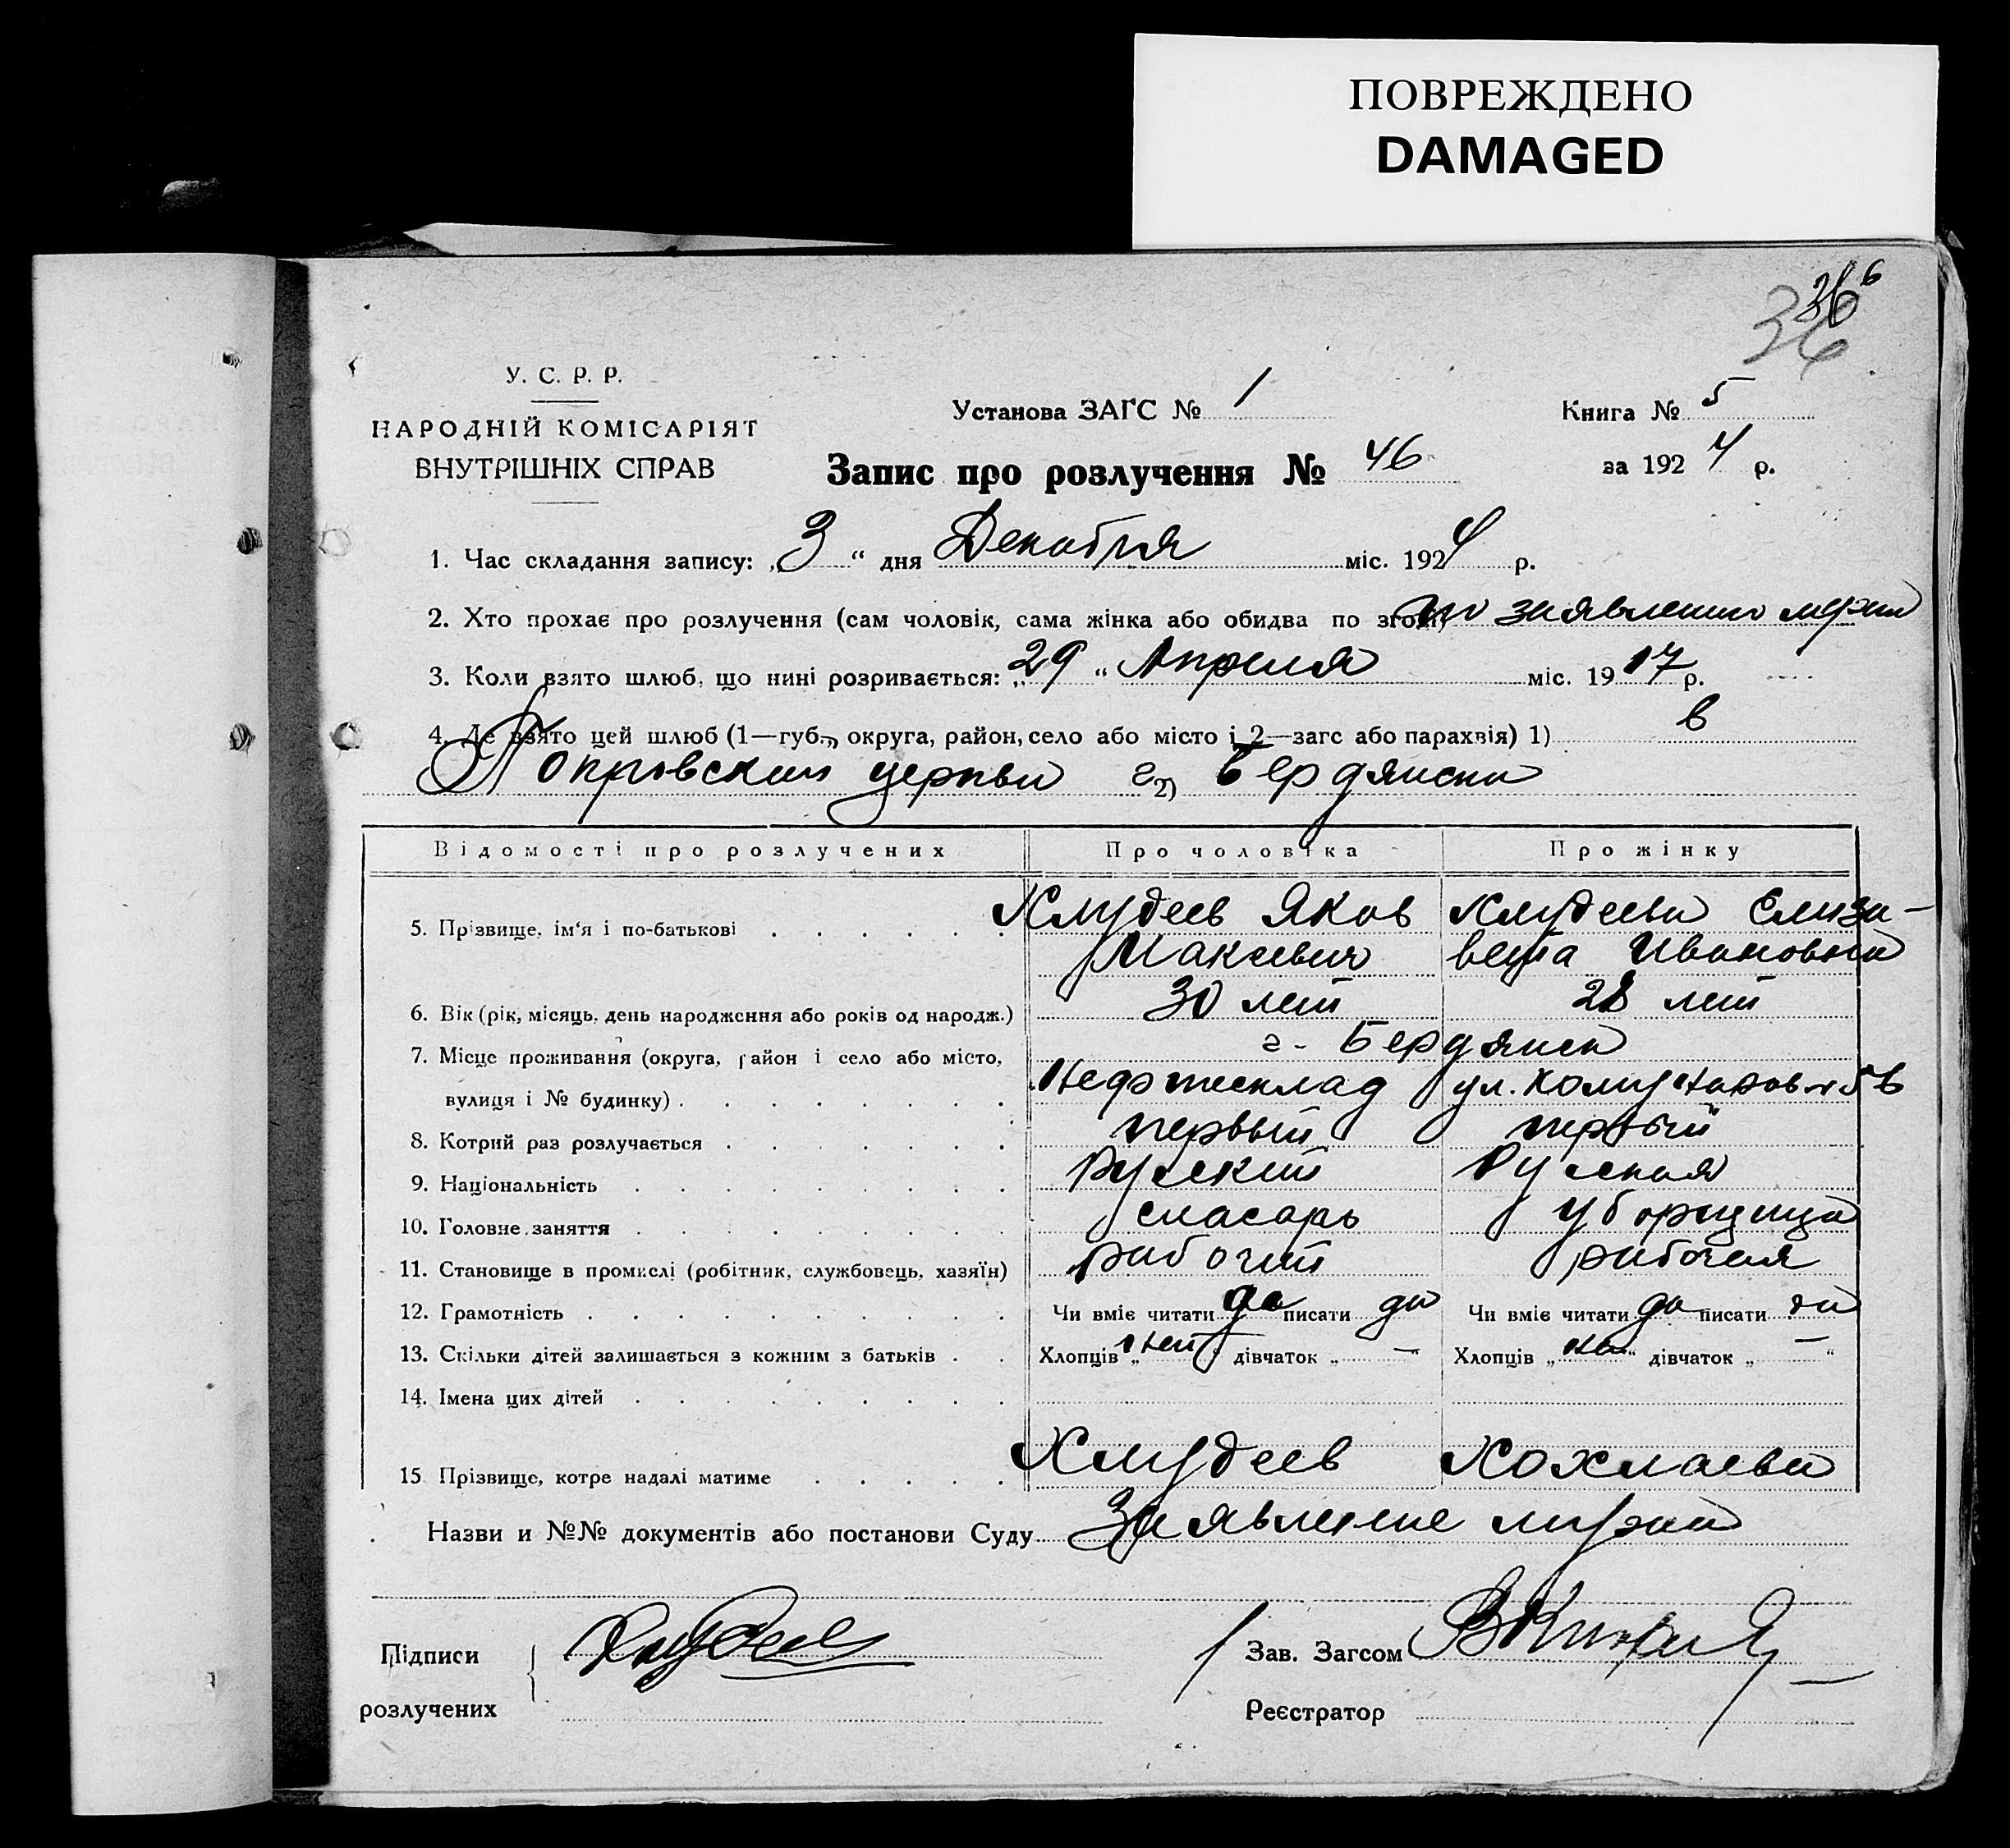 ПОВРЕЖДЕНО
DAMAGED
36 6
36
У. С. Р. Р.
НАРОДНІЙ КОМІСАРІЯТ
ВНУТРІШНІХ СПРАВ
Установа ЗАГС № 1
Книга № 5
Запис про розлучення № 46
за 1924 р.
1. Час складання запису: „3“ дня Декабря міс. 1924 р.
2. Хто прохає про розлучення (сам чоловік, сама жінка або обидва по згоді) по заявлению мужа
3. Коли взято шлюб, що нині розривається: „29“ Апреля міс. 1917 р.
4. Де взято цей шлюб (1—губ., округа, район, село або місто і 2—загс або парахвія) 1) в
Покровской церкви г. 2) Бердянска
Відомості про розлучених Про чоловіка Про жінку
5. Прізвище, ім'я і по-батькові Хмудеев Яков Хмудеева Елиза-
Макеевич вета Ивановна
6. Вік (рік, місяць, день народження або років од народж.) 30 лет 28 лет
7. Місце проживання (округа, район і село або місто, г. Бердянск
вулиця і № будинку) Нефтесклад ул.
8. Котрий раз розлучається первый первый
9. Національність Русский Русская
10. Головне заняття слесарь уборщица
11. Становище в промислі (робітник, службовець, хазяїн) рабочий рабочая
12. Грамотність Чи вміє читати да писати да Чи вміє читати да писати да
13. Скільки дітей залишається з кожним з батьків Хлопців „нет“ дівчаток „—“ Хлопців „нет“ дівчаток „—“
14. Імена цих дітей
15 Прізвище, котре надалі матиме Хмудеев Хохлаева
Назви и №№ документів або постанови Суду Заявление мужа
Підписи
розлучених
Зав. Загсом
Реєстратор